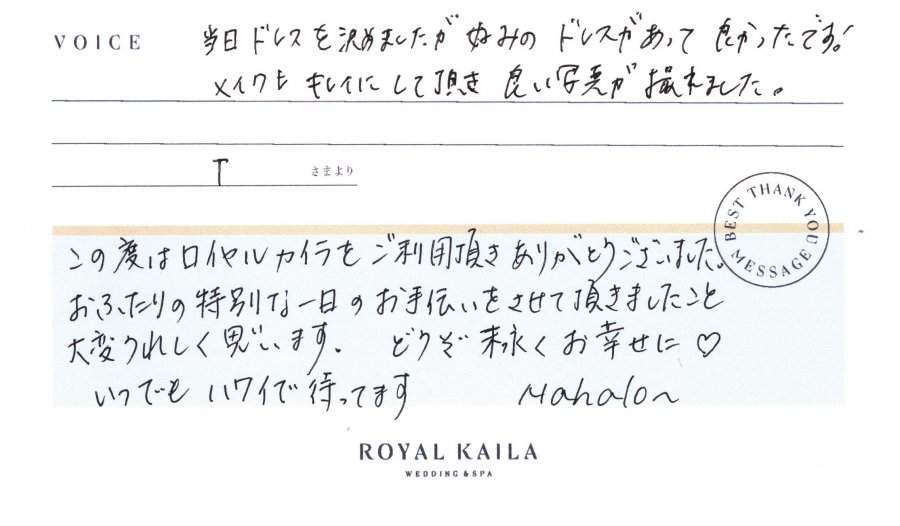 VOICE
当日ドレスを決めましたが好みのドレスがあって良かったです!
メイクもキレイにして頂き良い写真が撮れました。
T さまより
BEST THANK YOU MESSAGE
この度はロイヤルカイラをご利用頂きありがとうございました。
おふたりの特別な一日のお手伝いをさせて頂きましたこと
大変うれしく思います。どうぞ末永くお幸せに♡
いつでもハワイで待ってます Mahalo~
ROYAL KAILA
WEDDING & SPA